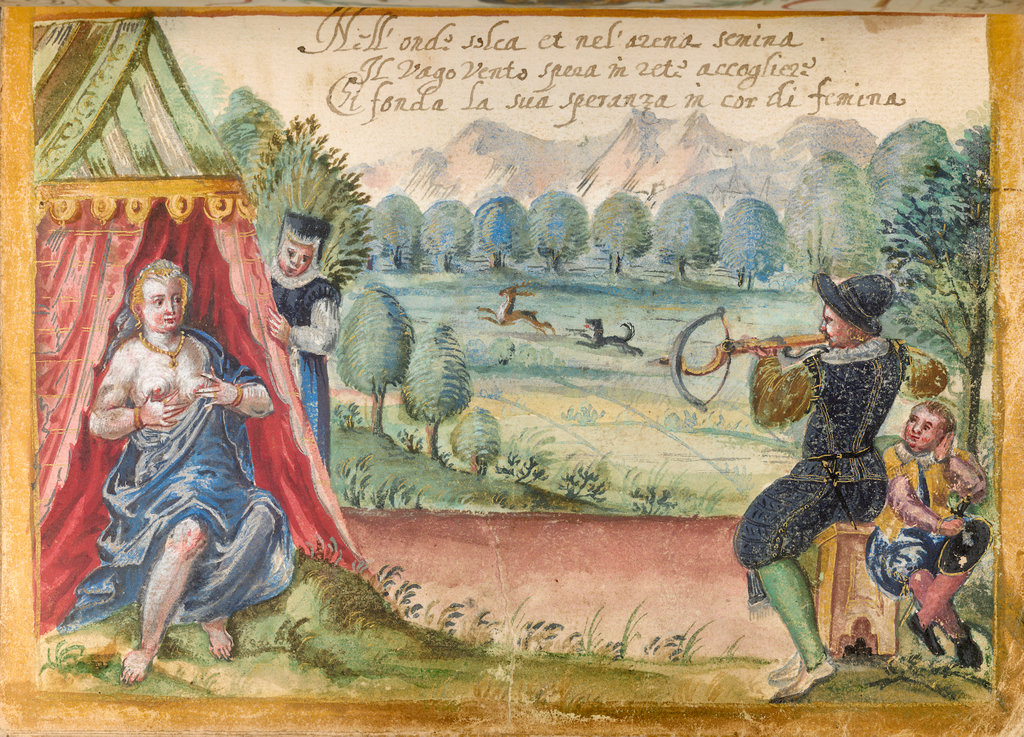 Nell' onde solca et nel' arena semina
Il vago vento spera in rete accogliere
Chi fonda la sua speranza in cor di femina